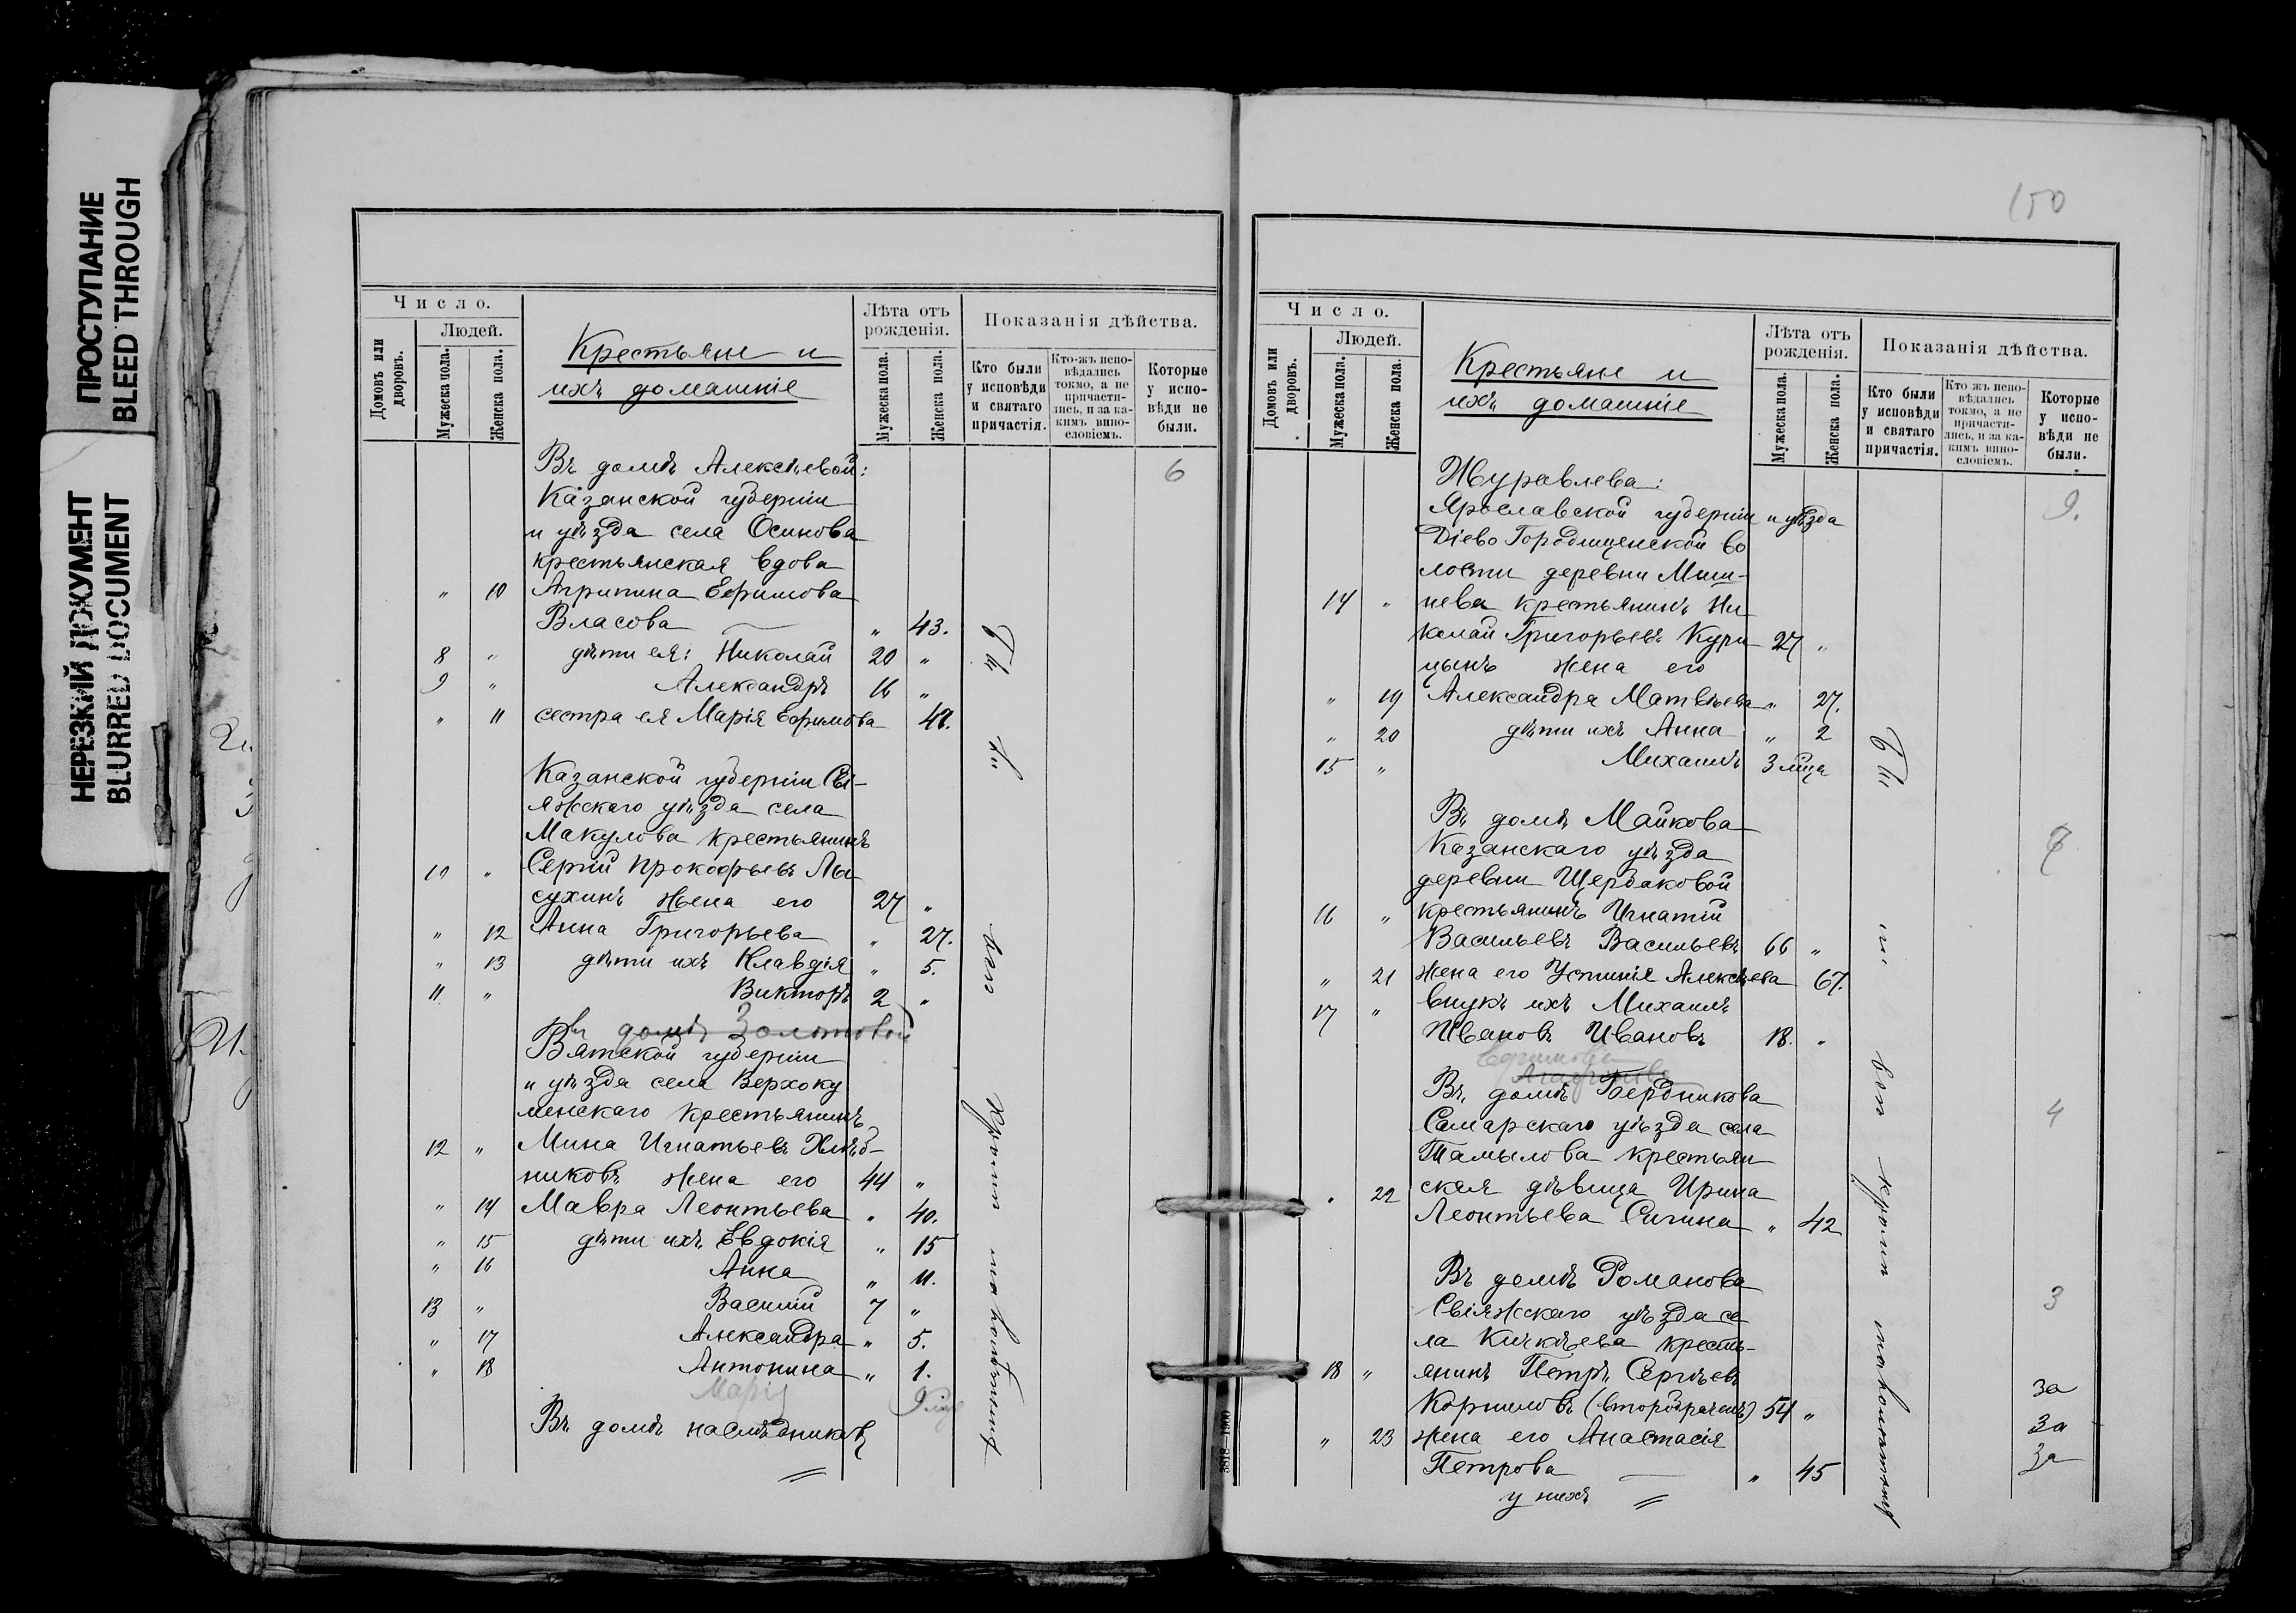 ПРОСТУПАНИЕ
BLEED THROUGH
НЕРЕЗКИЙ ДОКУМЕНТ
BLURRED DOCUMENT
Число.
Людей.
Домовъ или дворовъ.
Мужеска пола.
Женска пола.
Крестьяне и
ихъ домашніе
Лѣта отъ рожденія.
Мужеска пола.
Женска пола.
Показанія дѣйства.
Кто были у исповѣди и святаго причастія.
Кто-жъ испо-вѣдались токмо, а не причасти-лись, и за ка-кимъ вино-словіемъ.
Которые у испо-вѣди не были.
Въ домѣ Алексѣевой: 6
Казанской губерніи
и уѣзда села Осинова
крестьянская вдова
" 10 Агрипина Ефимова
Власова " 43.
8 " дѣти ея: Николай 20 "
9 " Александръ 16 "
" 11 сестра ея Марія Ефимова
Казанской губерніи Сві-
яжскаго уѣзда села
Макулова крестьянинъ
10 " Сергій Прокофьевъ Лы
сухинъ жена его 27 "
" 12 Анна Григорьева " 27.
" 13 дѣти ихъ Клавдія " 5.
11 " Викторъ 2 "
въ домѣ Золотовой
Вятской губерніи
и уѣзда села Верхоку
менскаго крестьянинъ
12 " Мина Игнатьевъ Хлѣб-
никовъ жена его 44 "
" 14 Мавра Леонтьева " 40.
" 15 дѣти ихъ Евдокія " 15
" 16 Анна " 11.
13 " Василій 7 "
" 17 Александра " 5.
" 18 Антонина " 1.
Марія
Въ домѣ наслѣдниковъ
Были
все
кромѣ малолѣтнихъ
150
Число.
Людей.
Домовъ или дворовъ.
Мужеска пола.
Женска пола.
Крестьяне и
ихъ домашніе
Лѣта отъ рожденія.
Мужеска пола.
Женска пола.
Показанія дѣйства.
Кто были у исповѣди и святаго причастія.
Кто жъ испо-вѣдались токмо, а не причасти-лись, и за ка-кимъ вино-словіемъ.
Которые у испо-вѣди не были.
Журавлева: 9.
Ярославской губерніи и уѣзда
Діево Городищенской во
лости деревни Миш-
14 " нева крестьянинъ Ни
колай Григорьевъ Кури 27 "
цынъ жена его
" 19 Александра Матвѣева " 27.
" 20 дѣти ихъ Анна " 2
15 " Михаилъ 3 м-ца
Въ домѣ Майкова
Казанскаго уѣзда
деревни Щербаковой
16 " крестьянинъ Игнатій
Васильевъ Васильевъ 66 "
" 21 жена его Устинія Алексѣева 67.
17 " внукъ ихъ Михаилъ
Ивановъ Ивановъ 18. "
Въ домѣ Бердникова
Самарскаго уѣзда села 4
Томылова крестьян
" 22 ская дѣвица Ирина
Леонтьева Сигина " 42
Въ домѣ Романова
Свіяжскаго уѣзда се 3
ла Кичкѣева кресть-
18 " янинъ Петръ Сергѣевъ
Корниловъ (второбрачный) 54 " за
" 23 жена его Анастасія за
Петрова " 45 за
у нихъ
все кромѣ малолѣтнихъ
3818—1900